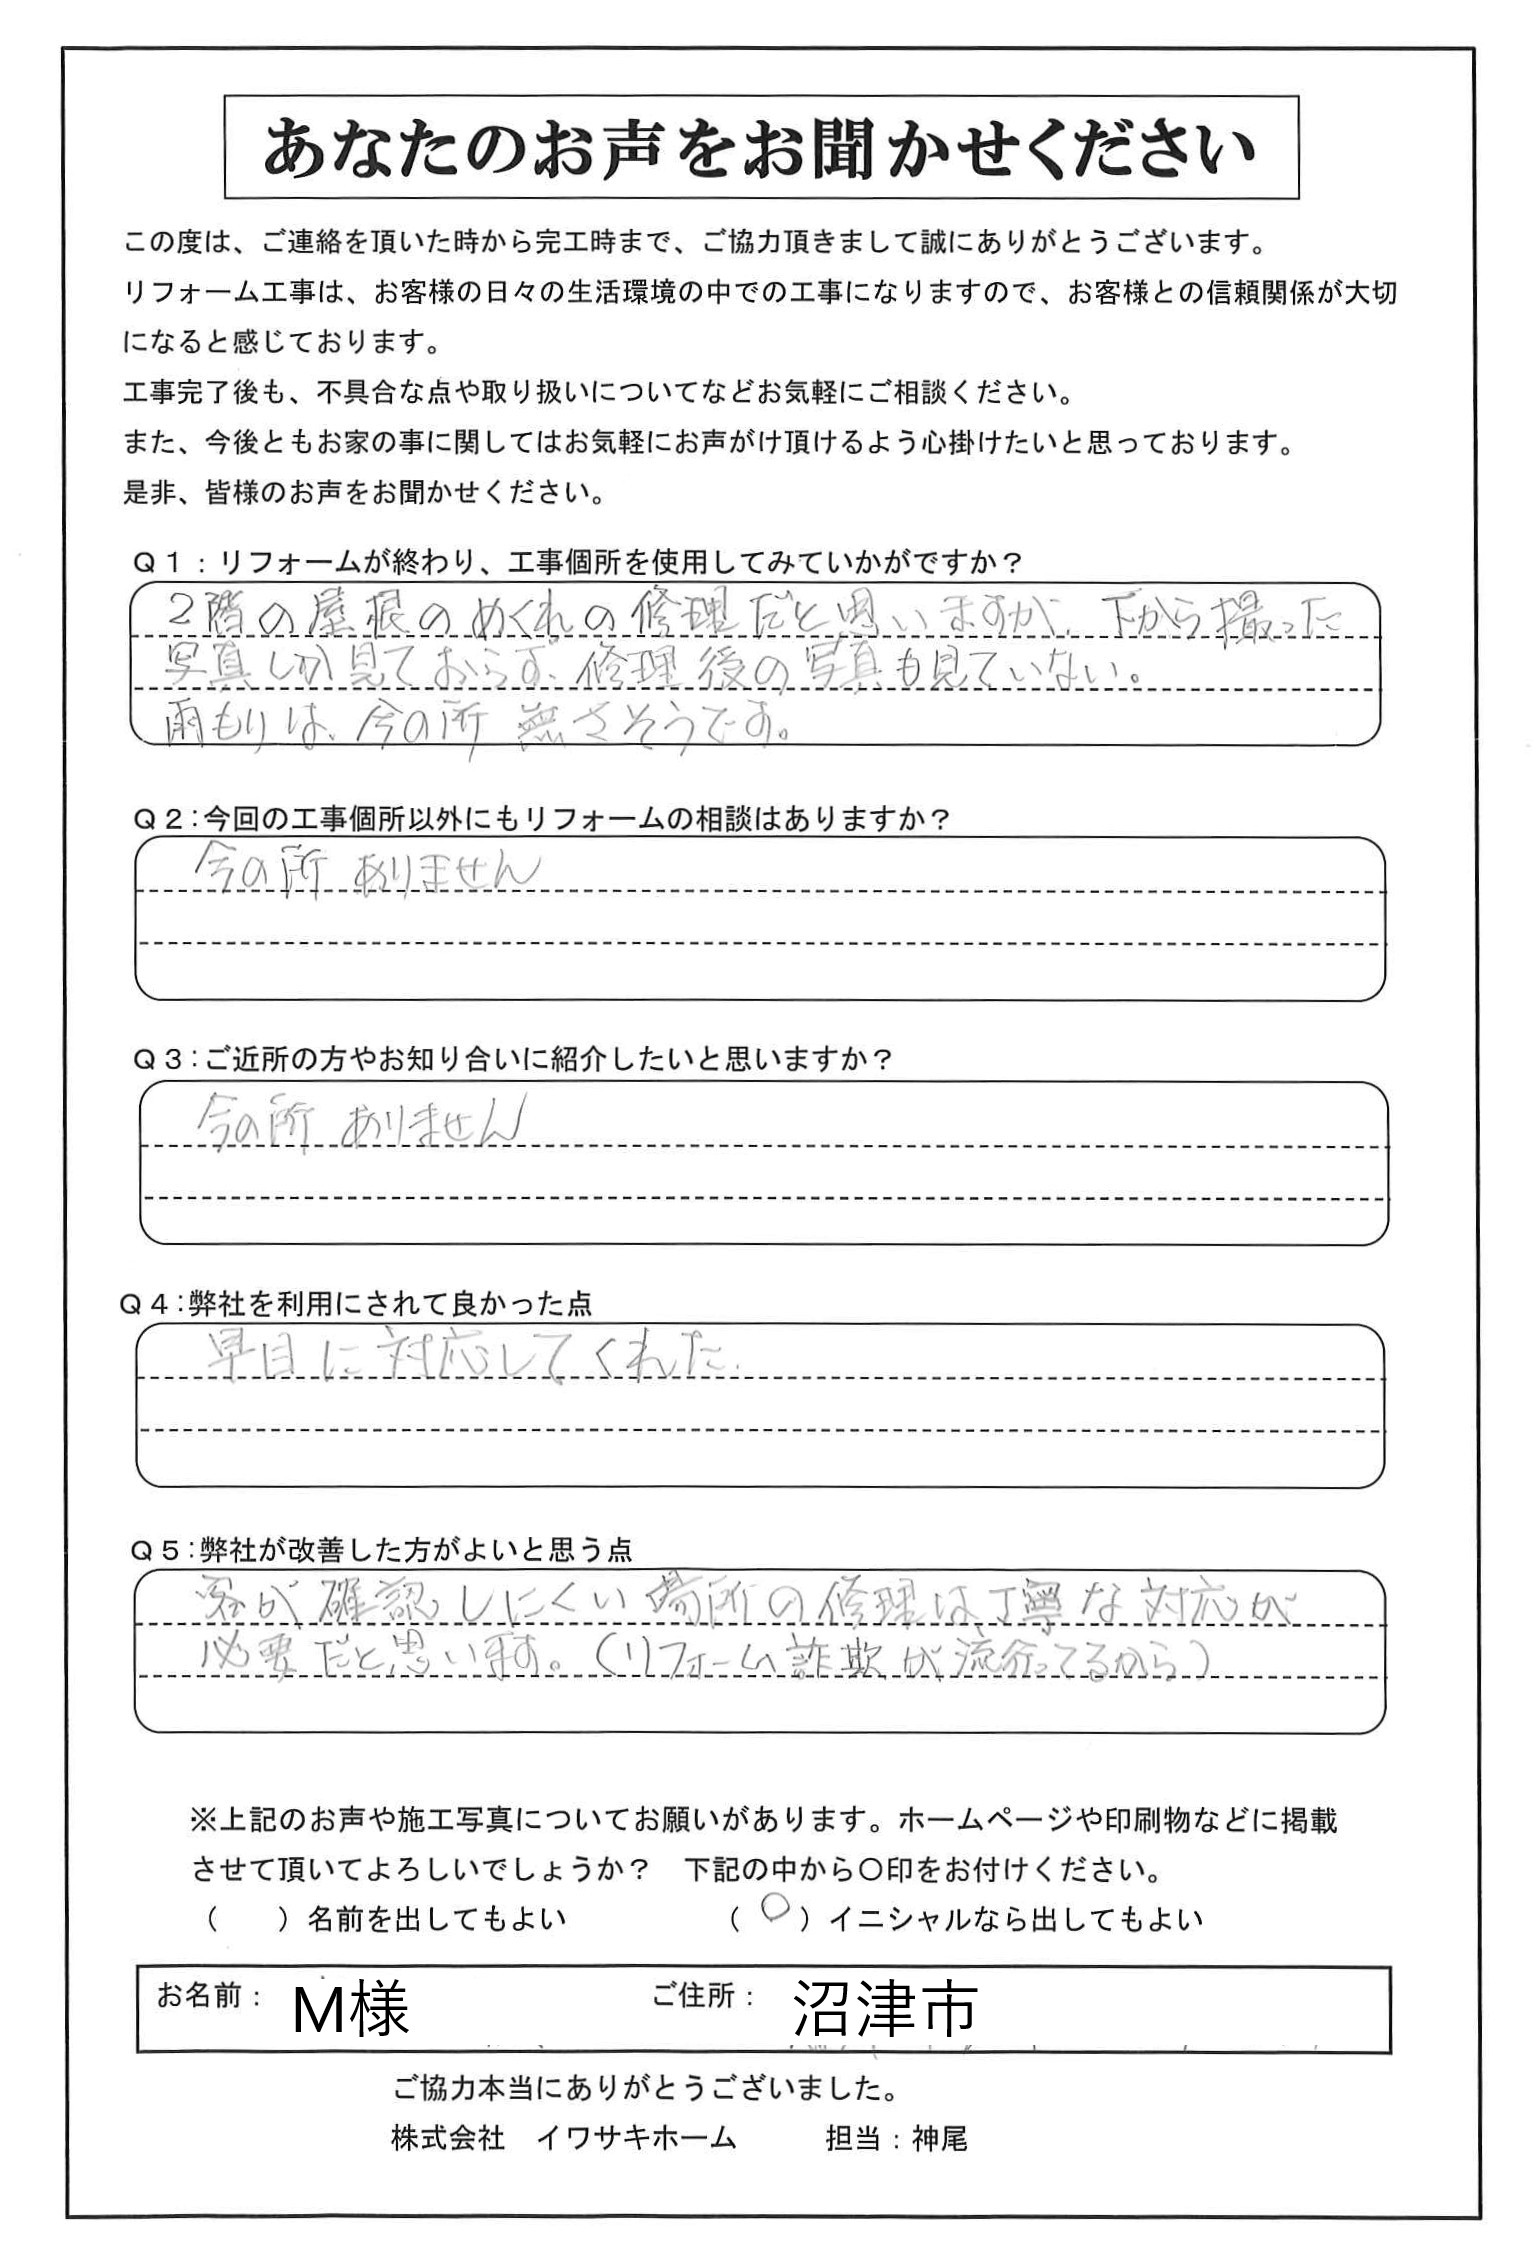 あなたのお声をお聞かせください
この度は、ご連絡を頂いた時から完工時まで、ご協力頂きまして誠にありがとうございます。
リフォーム工事は、お客様の日々の生活環境の中での工事になりますので、お客様との信頼関係が大切
になると感じております。
工事完了後も、不具合な点や取り扱いについてなどお気軽にご相談ください。
また、今後ともお家の事に関してはお気軽にお声がけ頂けるよう心掛けたいと思っております。
是非、皆様のお声をお聞かせください。
Q1：リフォームが終わり、工事個所を使用してみていかがですか？
2階の屋根のめくれの修理だと思いますが、下から撮った
写真しか見ておらず、修理後の写真も見ていない。
雨もりは、今の所 無さそうです。
Q2：今回の工事個所以外にもリフォームの相談はありますか？
今の所 ありません
Q3：ご近所の方やお知り合いに紹介したいと思いますか？
今の所 ありません
Q4：弊社を利用にされて良かった点
早目に対応してくれた.
Q5：弊社が改善した方がよいと思う点
客が確認しにくい場所の修理は丁寧な対応が
必要だと思います。（リフォーム詐欺が流行ってるから）
※上記のお声や施工写真についてお願いがあります。ホームページや印刷物などに掲載
させて頂いてよろしいでしょうか？　下記の中から〇印をお付けください。
（　　）名前を出してもよい　（〇）イニシャルなら出してもよい
お名前： M様　ご住所： 沼津市
ご協力本当にありがとうございました。
株式会社　イワサキホーム　担当：神尾